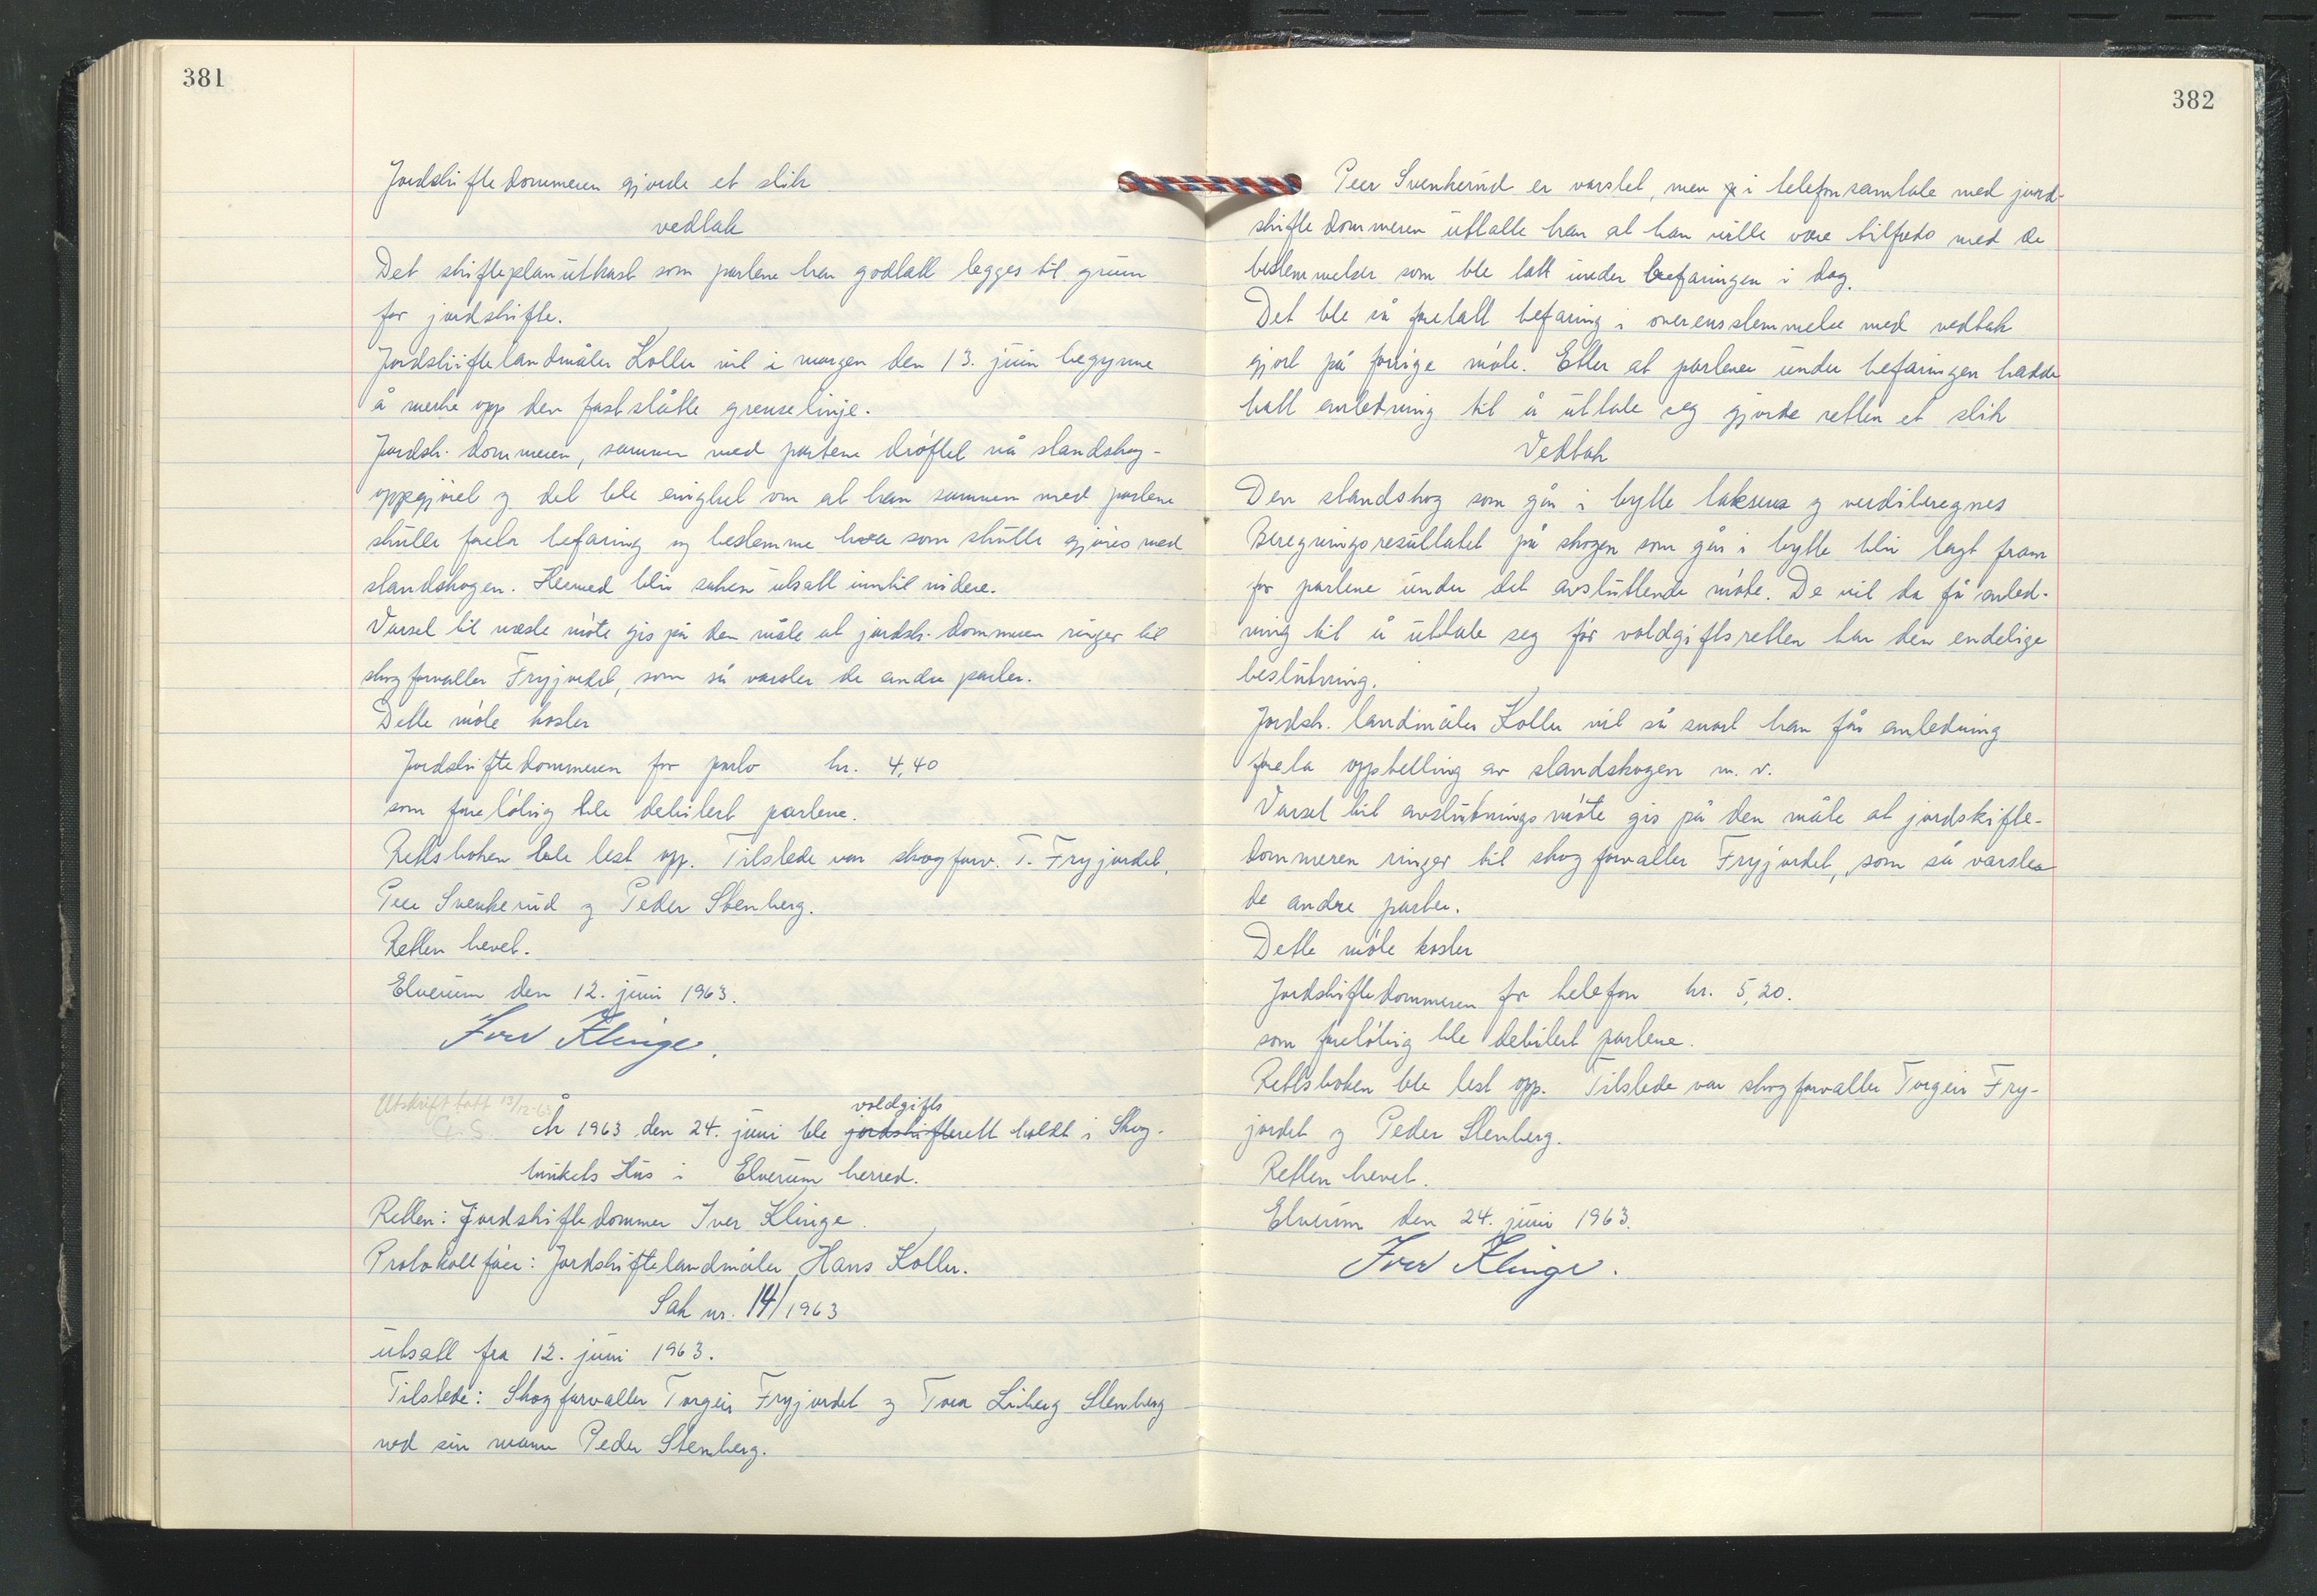 381
Jordskiftedommeren gjorde et slik
vedtak
Det skifteplanutkast som partene har godtatt legges til grunn
for jordskifte.
Jordskiftelandmåler Koller vil i morgen den 13. juni begynne
å merke opp den fastslåtte grenselinje.
Jordsk. dommeren, sammen med partene drøftet nå standskog-
oppgjøret og det ble enighet om at han sammen med partene
skulle foreta befaring og bestemme hva som skulle gjøres med
standskogen. Hermed blir saken utsatt inntil videre.
Varsel til neste møte gis på den måte at jordsk. dommeren ringer til
skogforvalter Fryjordet, som så varsler de andre parter.
Dette møte koster
Jordskiftedommeren for porto kr. 4,40
som foreløbig ble debitert partene.
Rettsboken ble lest opp. Tilstede var skogforv. T. Fryjordet,
Peer Svenkerud og Peder Stenberg.
Retten hevet.
Elverum den 12. juni 1963.
Iver Klinge.
Utskrift tatt 13/12-63
År 1963 den 24. juni ble jordskifterett voldgifts holdt i Skog-
brukets Hus i Elverum herred.
Retten: Jordskiftedommer Iver Klinge.
Protokollfører: Jordskiftelandmåler Hans Koller.
Sak nr. 14/1963
utsatt fra 12. juni 1963.
Tilstede: Skogforvalter Torgeir Fryjordet og Tora Liberg Stenberg
ved sin mann Peder Stenberg.
382
Peer Svenkerud er varslet, men i telefonsamtale med jord-
skiftedommeren uttalte han at han ville være tilfreds med de
bestemmelser som ble tatt under befaringen i dag.
Det ble så foretatt befaring i overensstemmelse med vedtak
gjort på forrige møte. Etter at partene under befaringen hadde
hatt anledning til å uttale seg gjorde retten et slik
Vedtak
Den standskog som går i bytte takseres og verdiberegnes
Beregningsresultatet på skogen som går i bytte blir lagt fram
for partene under det avsluttende møte. De vil da få anled-
ning til å uttale seg før voldgiftsretten tar den endelige
beslutning.
Jordsk. landmåler Koller vil så snart han får anledning
foreta opptelling av standskogen m. v.
Varsel til avslutningsmøte gis på den måte at jordskifte-
dommeren ringer til skogforvalter Fryjordet, som så varsler
de andre parter.
Dette møte koster
Jordskiftedommeren for telefon kr. 5,20.
som foreløbig ble debitert partene.
Rettsboken ble lest opp. Tilstede var skogforvalter Torgeir Fry-
jordet og Peder Stenberg.
Retten hevet.
Elverum den 24. juni 1963.
Iver Klinge.